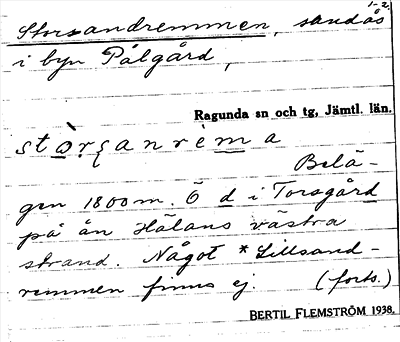 1-2
Storsandremmen, sandås
i byn Pålgård,
Ragunda sn och tg, Jämtl. län.
Belä-
gen 1800 m. Ö d i Torsgård
på ån Hälans västra
strand. Något *Lillsand-
remmen finns ej. (forts.)
BERTIL FLEMSTRÖM 1938.